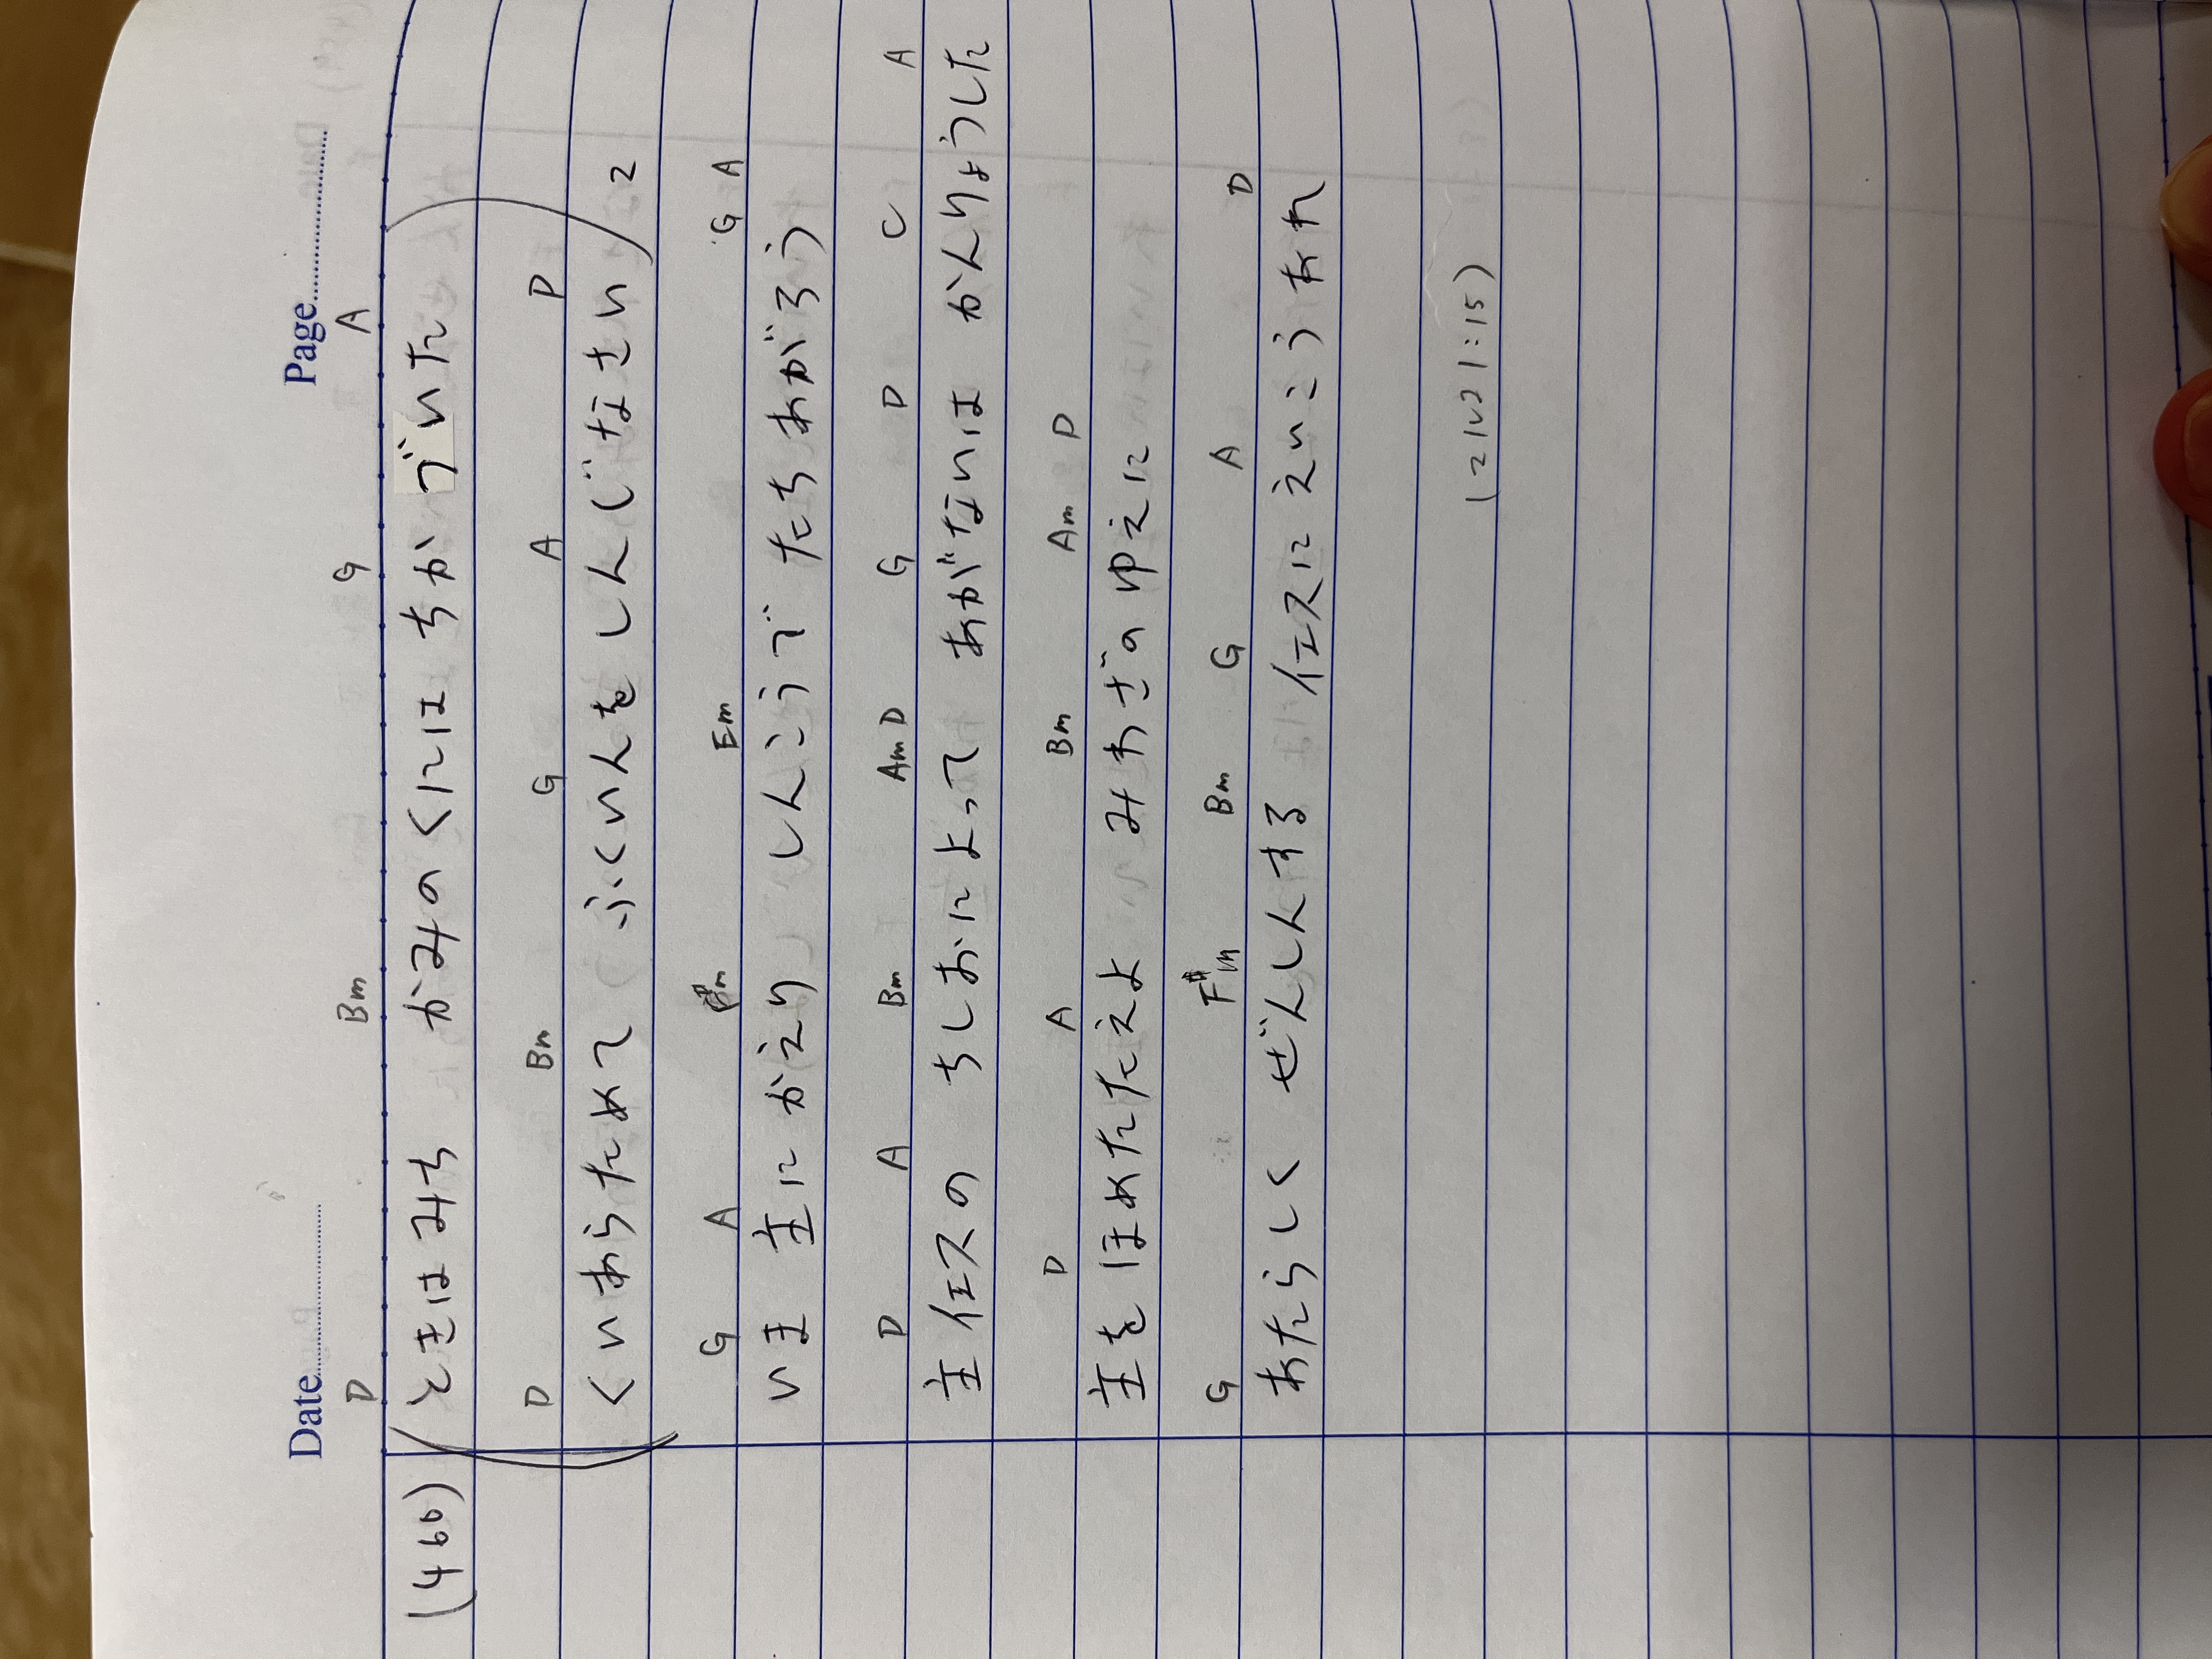 Date Page
D Bm G A
(460) (ときはみち かみのくにはちかづいた
D Bm G A D
くいあらためて ふくいんをしんじなさい) 2
G A Em G A
いま 主にかえり しんこうで たちあがろう
D A Bm Am D G D C A
主イエスの ちしおによって あがないは かんりょうした
D A Bm Am D
主をほめたたえよ みわざのゆえに
G F#m Bm G A D
あたらしく ぜんしんする イエスにえいこうあれ
1:15)